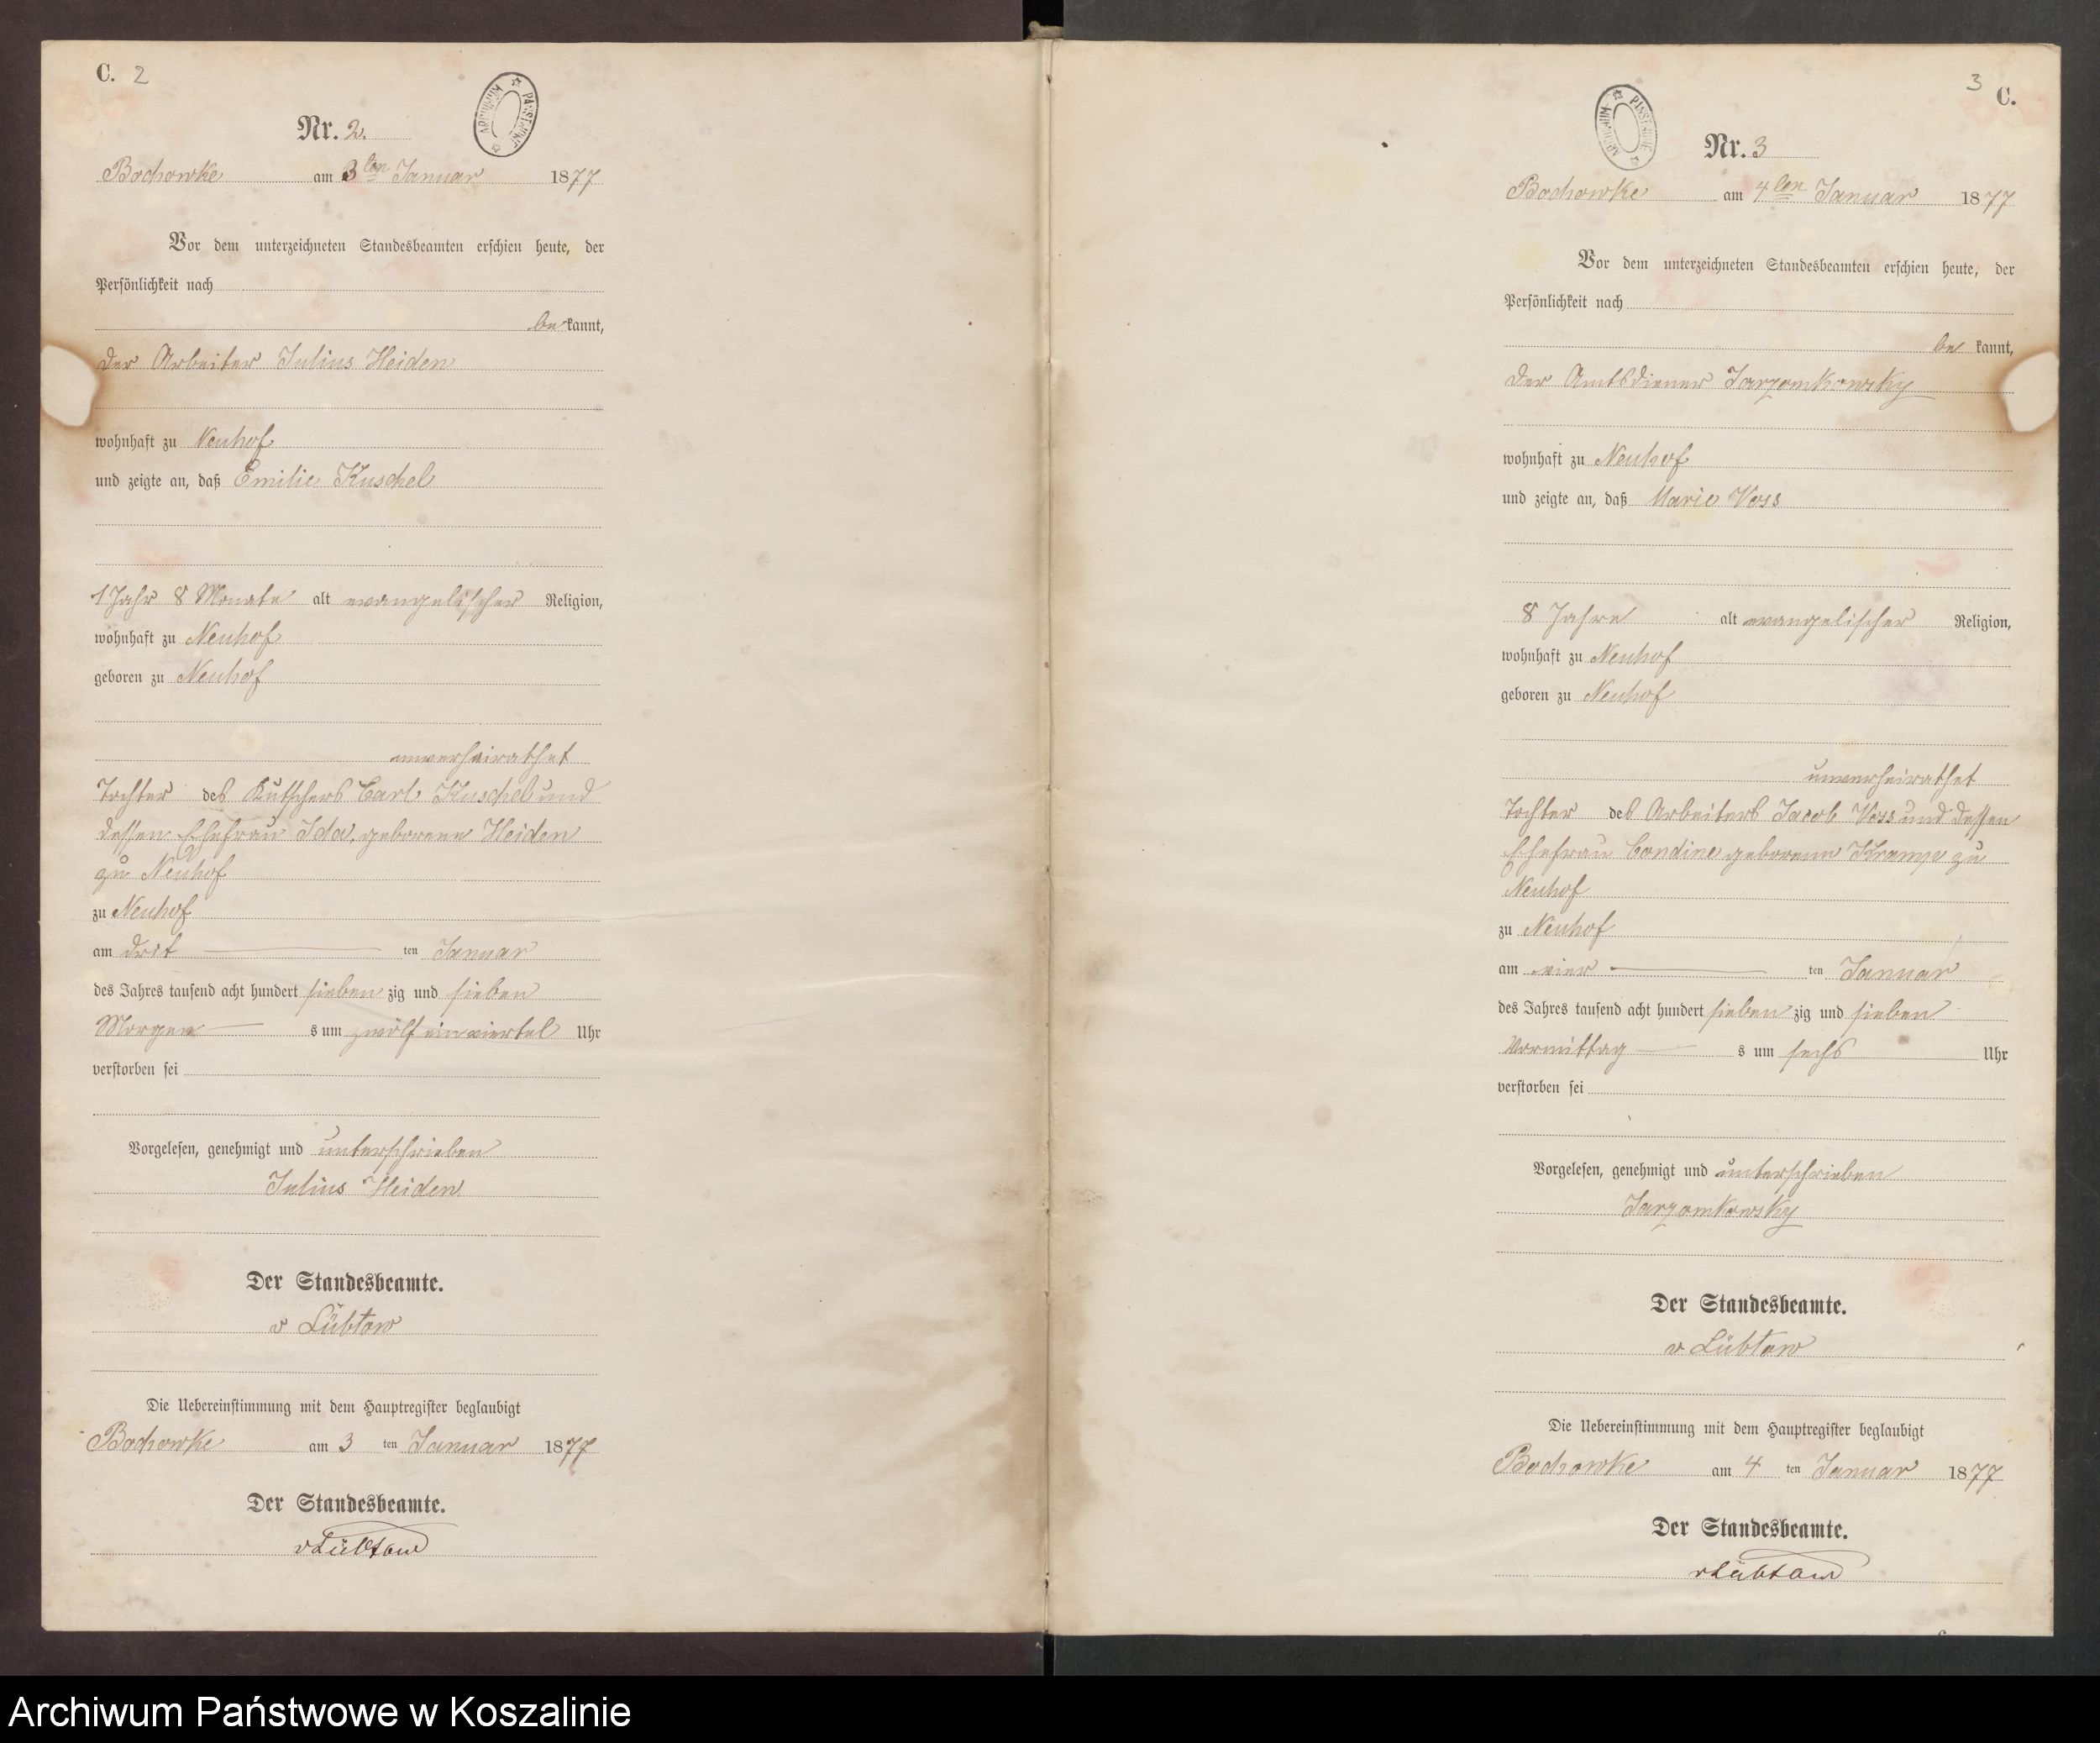 C. 2
ARCHIWUM PAŃSTWOWE
Nr. 2.
Bochowke am 3ten Januar 1877
Vor dem unterzeichneten Standesbeamten erschien heute, der
Persönlichkeit nach
be kannt,
der Arbeiter Julius Heiden
wohnhaft zu Neuhof
und zeigte an, daß Emilie Kuschel
1 Jahr 8 Monate alt evangelischer Religion,
wohnhaft zu Neuhof
geboren zu Neuhof
unverheirathet
Tochter des Kutschers Carl Kuschel und
dessen Ehefrau Ida, geborene Heiden
zu Neuhof
zu Neuhof
am drit ten Januar
des Jahres tausend acht hundert sieben zig und sieben
Morgen s um zwölf einviertel Uhr
verstorben sei
Vorgelesen, genehmigt und unterschrieben
Julius Heiden
Der Standesbeamte.
v Lübtow
Die Uebereinstimmung mit dem Hauptregister beglaubigt
Bochowke am 3 ten Januar 1877
Der Standesbeamte.
vLübtow
3 C.
ARCHIWUM PAŃSTWOWE
Nr. 3
Bochowke am 4ten Januar 1877
Vor dem unterzeichneten Standesbeamten erschien heute, der
Persönlichkeit nach
be kannt,
der Amtsdiener Jarzomkowsky
wohnhaft zu Neuhof
und zeigte an, daß Marie Voss
8 Jahre alt evangelischer Religion,
wohnhaft zu Neuhof
geboren zu Neuhof
unverheirathet
Tochter des Arbeiters Jacob Voss und dessen
Ehefrau geborene Krampe zu
Neuhof
zu Neuhof
am vier ten Januar
des Jahres tausend acht hundert sieben zig und sieben
Vormittag s um sechs Uhr
verstorben sei
Vorgelesen, genehmigt und unterschrieben
Jarzomkowsky
Der Standesbeamte.
v Lübtow
Die Uebereinstimmung mit dem Hauptregister beglaubigt
Bochowke am 4 ten Januar 1877
Der Standesbeamte.
vLübtow
Archiwum Państwowe w Koszalinie